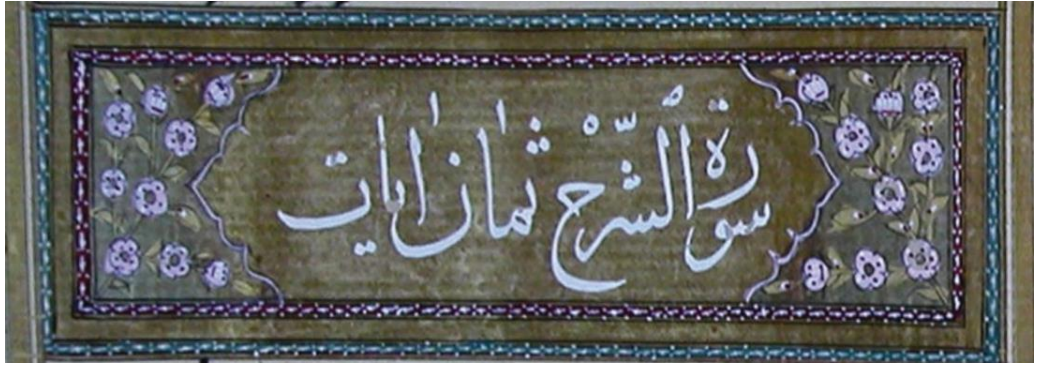 سورة الشرح ثمان اٰيات